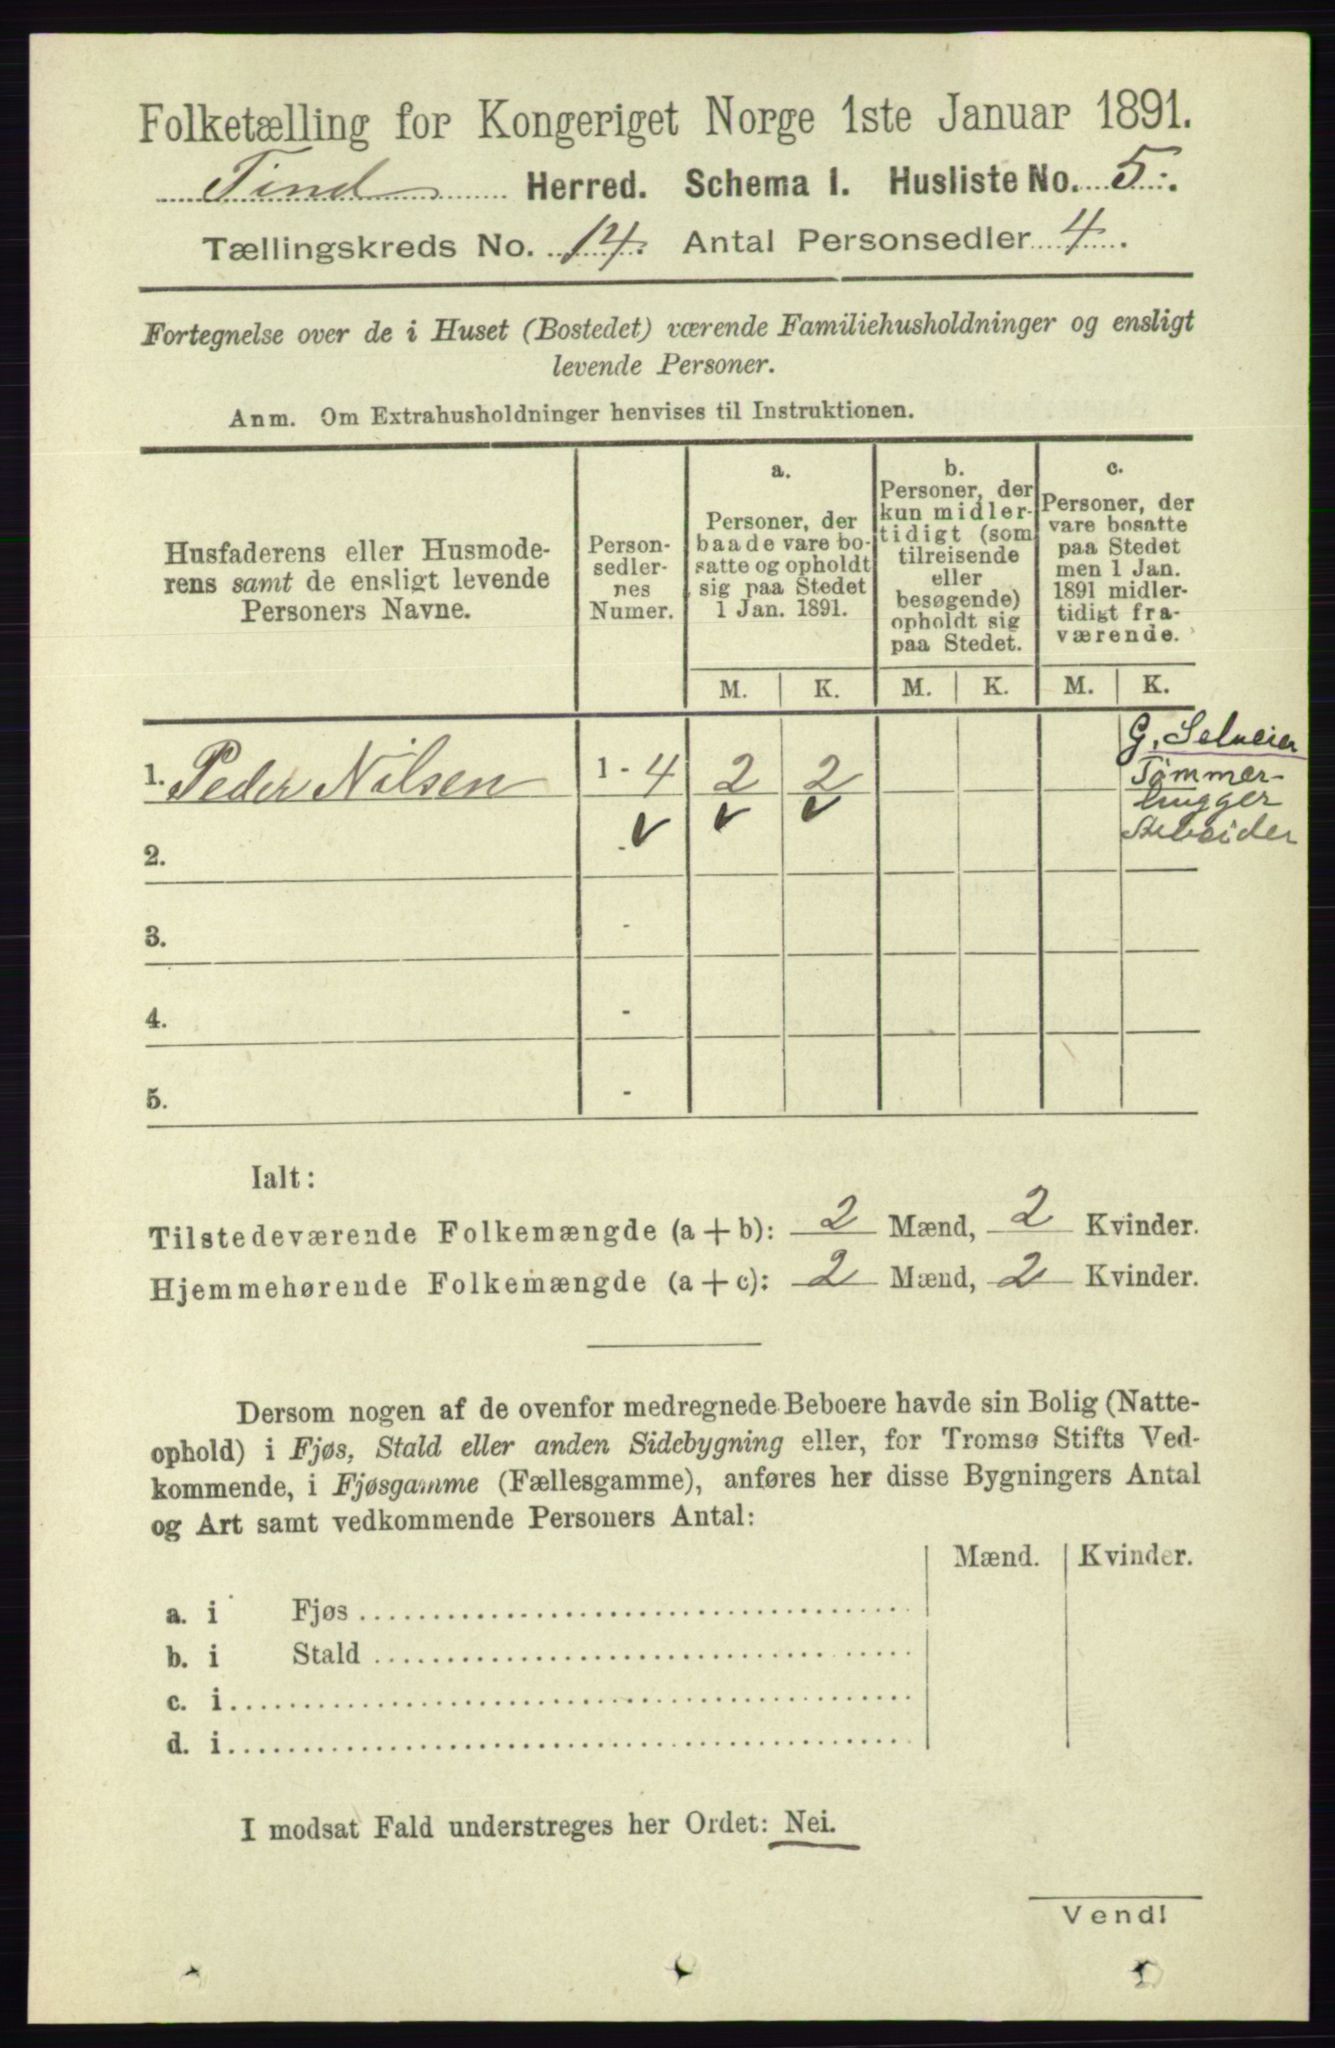 Folketælling for Kongeriget Norge 1ste Januar 1891.
Tind Herred. Schema I. Husliste No. 5.
Tællingskreds No. 14. Antal Personsedler 4.
Fortegnelse over de i Huset (Bostedet) værende Familiehusholdninger og ensligt
levende Personer.
Anm. Om Extrahusholdninger henvises til Instruktionen.
Husfaderens eller Husmode-
rens samt de ensligt levende
Personers Navne.
Person-
sedler-
nes
Numer.
a.
Personer, der
baade vare bo-
satte og opholdt
sig paa Stedet
1 Jan. 1891.
b.
Personer, der
kun midler-
tidigt (som
tilreisende
eller
besøgende)
opholdt sig
paa Stedet.
c.
Personer, der
vare bosatte
paa Stedet
men 1 Jan.
1891 midler-
tidigt fra-
værende.
M. K. M. K. M. K.
1. Peder Nilsen 1 - 4 2 2
G. Selveier
Tömmer-
hugger
Arbeider
2. -
3. -
4. -
5. -
Ialt:
Tilstedeværende Folkemængde (a + b): 2 Mænd, 2 Kvinder.
Hjemmehørende Folkemængde (a + c): 2 Mænd, 2 Kvinder.
Dersom nogen af de ovenfor medregnede Beboere havde sin Bolig (Natte-
ophold) i Fjøs, Stald eller anden Sidebygning eller, for Tromsø Stifts Ved-
kommende, i Fjøsgamme (Fællesgamme), anføres her disse Bygningers Antal
og Art samt vedkommende Personers Antal:
Mænd. Kvinder.
a. i Fjøs
b. i Stald
c. i
d. i
I modsat Fald understreges her Ordet: Nei.
Vend!